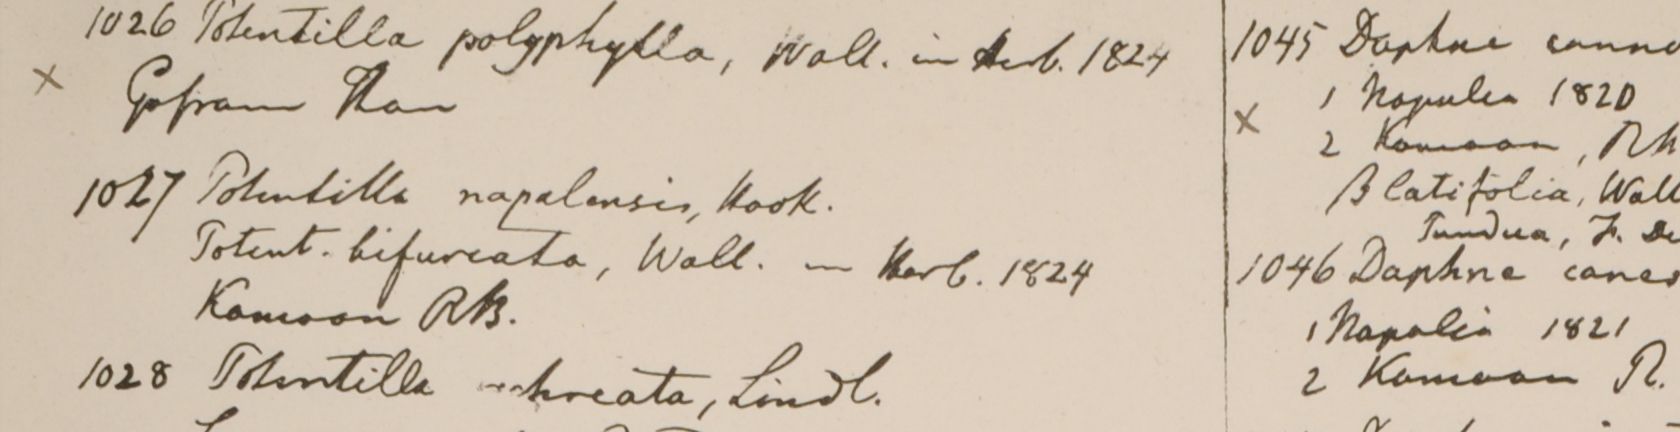 1026 Potentilla polyphylla, Wall. in Herb. 1824
Gosram Than
1027 Potentilla napalensis, Hook.
Potent. bifurcata, Wall. in Herb. 1824
Kamoon RB.
1028 Potentilla ochreata, Lindl.
1045 Daphne canna
1 Napalia 1820
2 Kamaon, R
β latifolia, Wall
Tundua, F. De
1046 Daphne canes
1 Napalia 1821
2 Kamaon R.